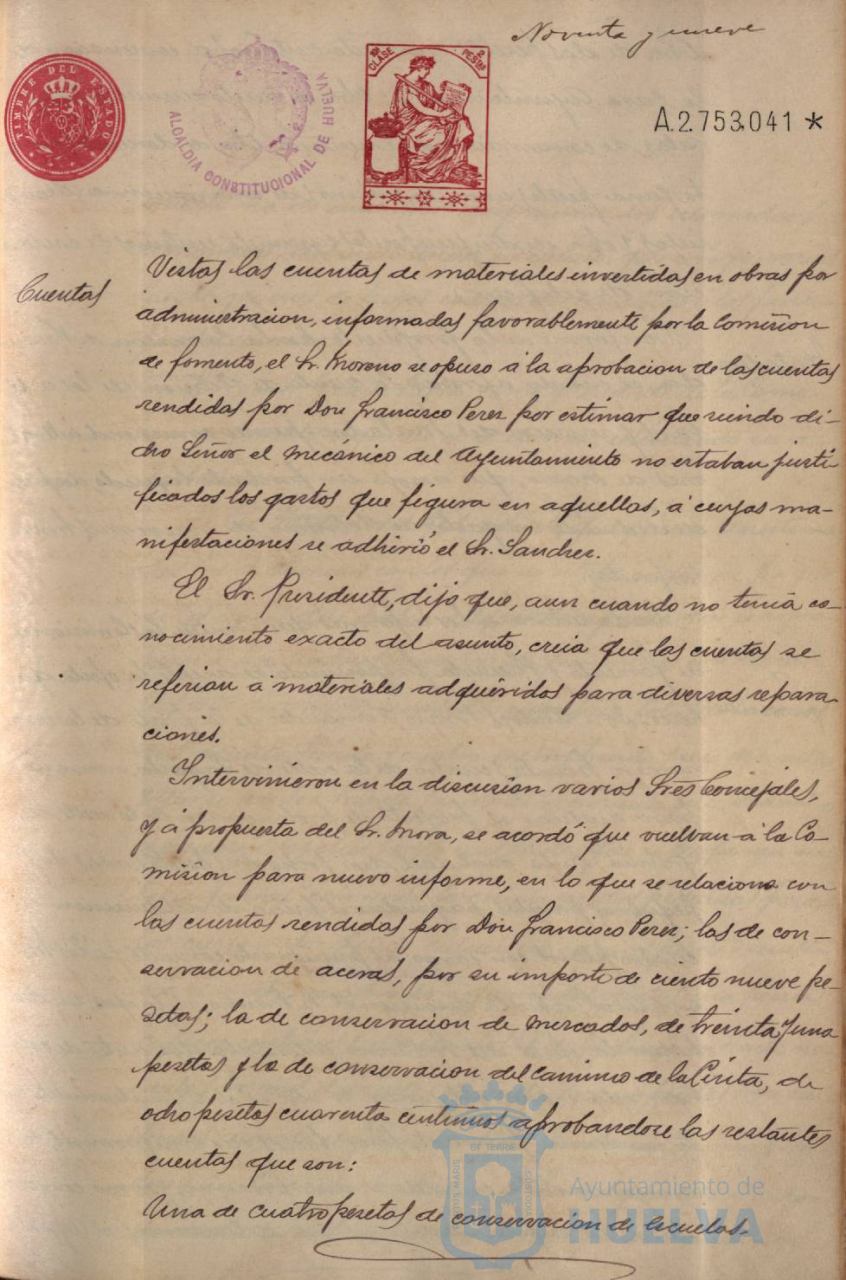 Noventa y nueve
TIMBRE DEL ESTADO
ALCALDIA CONSTITUCIONAL DE HUELVA
10ª CLASE
2 PESTAS
A.2.753.041 *
Cuentas
Vistas las cuentas de materiales invertidas en obras por
administracion, informadas favorablemente por la Comision
de fomento, el Sr. Moreno se opuso á la aprobacion de las cuentas
rendidas por Don Francisco Perez por estimar que siendo di-
cho Señor el mecánico del Ayuntamiento no estaban justi-
ficados los gastos que figura en aquellas, á cuyas ma-
nifestaciones se adhirió el Sr. Sanchez.
El Sr. Presidente, dijo que, aun cuando no tenia co-
nocimiento exacto del asunto, creia que las cuentas se
referian á materiales adquiridos para diversas repara-
ciones.
Intervinieron en la discusion varios Sres Concejales,
y á propuesta del Sr. Mora, se acordó que vuelvan á la Co-
mision para nuevo informe, en lo que se relaciona con
las cuentas rendidas por Don Francisco Perez; las de con-
servacion de aceras, por su importe de ciento nueve pe-
setas; la de conservacion de mercados, de treinta y una
pesetas y la de conservacion del camino de la Cinta, de
ocho pesetas cuarenta centimos aprobandose las restantes
cuentas que son:
Una de cuatro pesetas de conservacion de escuelas.
Ayuntamiento de
HUELVA